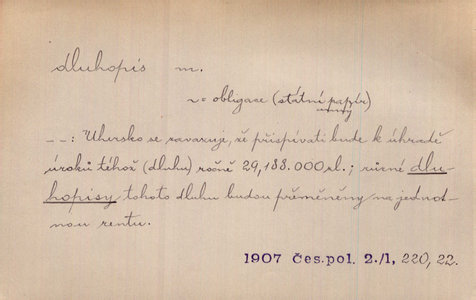 dluhopis m.
~ = obligace (státní papír)
– – : Uhersko se zavazuje, že přispívati bude k úhradě
úroků téhož (dluhu) ročně 29,188.000 zl.; různé dlu-
hopisy tohoto dluhu budou přeměněny na jednot-
nou rentu.
1907 Čes.pol. 2./1, 220, 22.